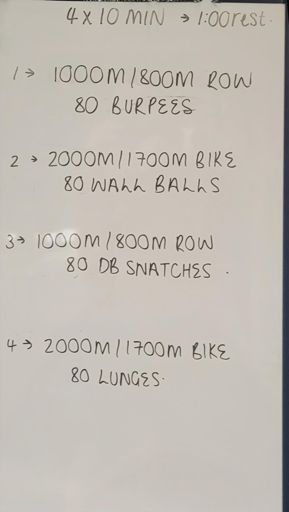 4 x 10 MIN → 1:00 rest.
1 → 1000M/800M ROW
80 BURPEES
2 → 2000M/1700M BIKE
80 WALL BALLS
3 → 1000M/800M ROW
80 DB SNATCHES.
4 → 2000M/1700M BIKE
80 LUNGES.